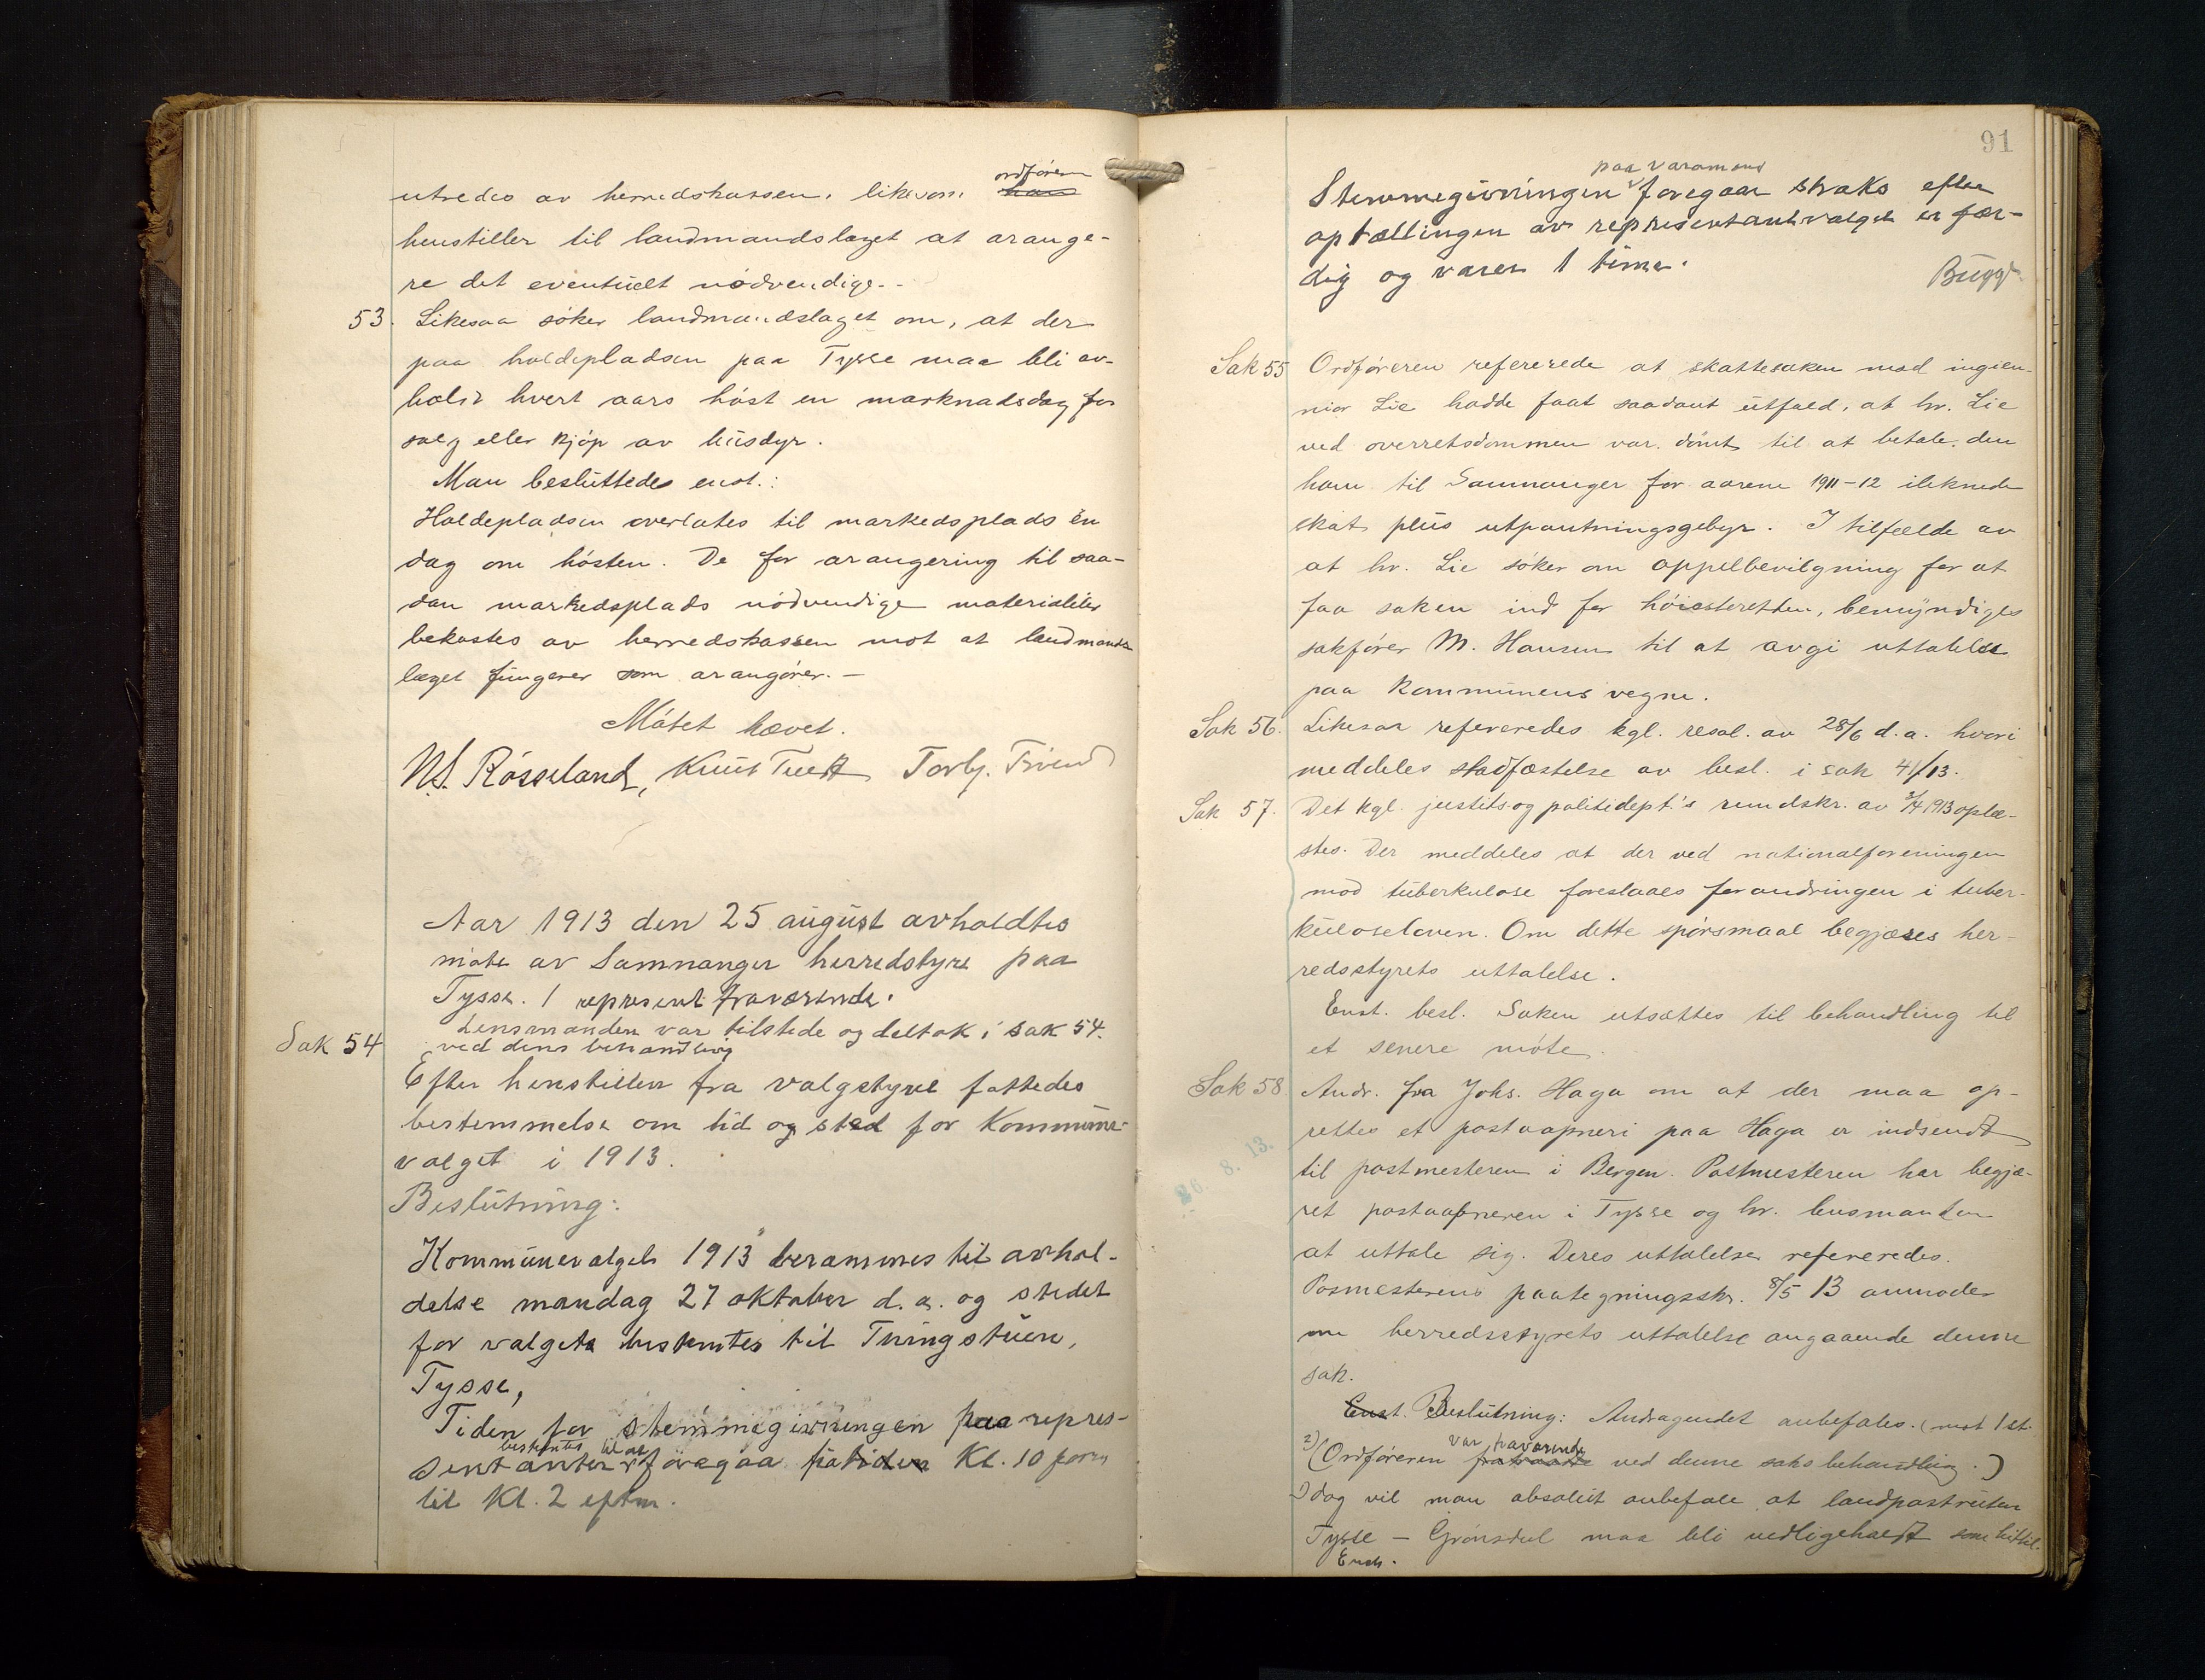 utredes av herredskassen, likesom ordføren han
henstiller til landmandslaget at arange-
re det eventuelt nødvendige. -
53. Likesaa søker landmandslaget om, at der
paa holdepladsen paa Tysse maa bli av-
holdt hvert aars høst en marknadsdag for
salg eller kjøp av husdyr.
Man besluttedes enst.:
Holdepladsen overlates til markedsplads én
dag om høsten. De for arangering til saa-
dan markedsplads nødvendige materialier
bekostes av herredskassen mot at landmands-
laget fungerer som arangører. -
Møtet hævet.
N.S. Røsseland, Knut Tveit Torbj.
Aar 1913 den 25 august avholdtes
møte av Samnanger herredstyre paa
Tysse. 1 represent fraværende.
Lensmanden var tilstede og deltok i sak 54.
ved dens behandling
Sak 54
Efter henstillen fra valgstyret fattedes
bestemmelse om tid og sted for Kommune-
valget i 1913.
Beslutning:
Kommunevalget 1913 berammes til avhol-
delse mandag 27 oktober d.a. og stedet
for valgets bestemtes til Thingstuen,
Tysse,
Tiden for stemmegivningen paa repres-
bestemtes til at
sentanter foregaa fra tiden Kl. 10 form
til Kl. 2 eftm.
91
paa varamænd
Stemmegivningen foregaar straks efter
optællingen av representantvalget er fær-
dig og varer 1 time.
Bugge
Sak 55 Ordføreren refererede at skattesaken mod ingien-
niør Lie hadde faat saadant utfald, at hr. Lie
ved overretsdommen var dømt til at betale den
ham til Samnanger for aarene 1911-12 ileknede
skat plus utpantningsgebyr. I tilfælde av
at hr. Lie søker om appelbevilgning for at
faa saken ind for høiesteretten, bemyndiges
sakfører M. Hansen til at avgi uttalelse
paa kommunens vegne.
Sak 56. Likesaa refereredes kgl. resol. av 28/6 d.a. hvori
meddeles stadfæstelse av besl. i sak 41/13.
Sak 57. Det kgl. justits og politidept.'s rundskr. av 3/4 1913 oplæ-
stes. Der meddeles at der ved nationalforeningen
mod tuberkulose foreslaaes forandringen i tuber-
kuloseloven. Om dette spørsmaal begjæres her-
redsstyrets uttalelse.
Enst. besl. Saken utsættes til behandling til
et senere møte.
Sak 58 Andr. fra Johs. Haga om at der maa op-
rettes et postaapneri paa Haga er indsendt
26. 8. 13.
til postmesteren i Bergen. Postmesteren har begjæ-
ret postaapneren i Tysse og hr. lensmanden
at uttale sig. Deres uttalelse refereredes.
Posmesterens paategningsskr. 8/5 13 anmoder
om herredsstyrets uttalelse angaaende denne
sak.
Enst. Beslutning: Andragendet anbefales. (mot 1 st.
var fraværende
2) (Ordføreren fratraadte ved denne saks behandling.)
1) dog vil man absolut anbefale at landpostruten
Tysse - Grønsdal maa bli vedligeholdt som hittil.
Enst.